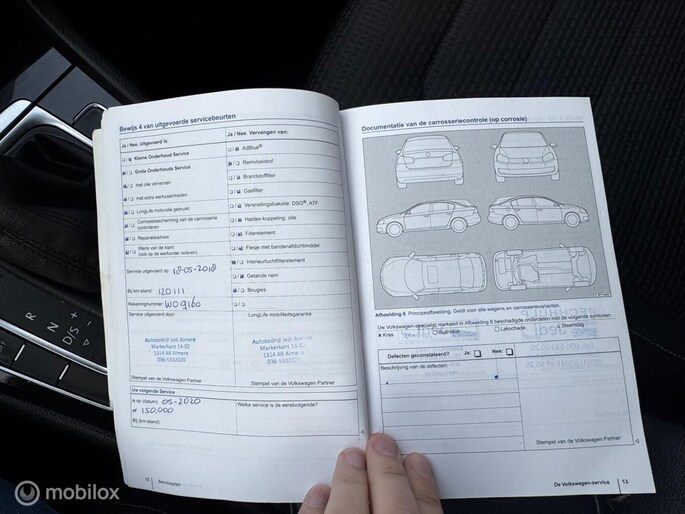 Bewijs 4 van uitgevoerde servicebeurten
Ja / Nee. Uitgevoerd is:
Kleine Onderhoud Service
Grote Onderhouds Service
met olie verversen
met extra werkzaamheden
LongLife motorolie gebruikt
Corrosiebescherming van de carrosserie controleren
Reparatieadvies
Wens van de klant
(ook op de werkorder noteren)
Service uitgevoerd op: 18-05-2018
Bij km-stand: 120111
Rekeningnummer: WO 9160
Service uitgevoerd door:
Autobedrijf Jesl Almere
Markerkant 14 03
1314 AR Almere
036-5332020
Stempel van de Volkswagen Partner
Ja / Nee. Vervangen van:
AdBlue®
Remvloeistof
Brandstoffilter
Gasfilter
Versnellingsbakolie: DSG®, ATF
Haldex-koppeling: olie
Filterelement
Flesje met bandenafdichtmiddel
Interieurluchtfilterelement
Getande riem
Bougies
LongLife mobiliteitsgarantie
Autobedrijf Jesl
Markerkant 14
1314 AR Almere
036-5332020
Stempel van de Volkswagen Partner
Uw volgende Service
is op (datum): 05-2020
of 150,000
Bij (km-stand):
Welke service is de eerstvolgende?
12
Serviceplan
Documentatie van de carrosseriecontrole (op corrosie)
Afbeelding 6 Principeafbeelding. Geldt voor alle wagens en carrosserievarianten.
Uw Volkswagen-specialist markeert in Afbeelding 6 beschadigde onderdelen met de volgende symbolen:
Kras
Buil/deuk
Lakschade
Steenslag
Defecten geconstateerd? Ja: Nee:
Beschrijving van de defecten:
Stempel van de Volkswagen Partner
De Volkswagen-service
13
R
N
D/S
mobilox